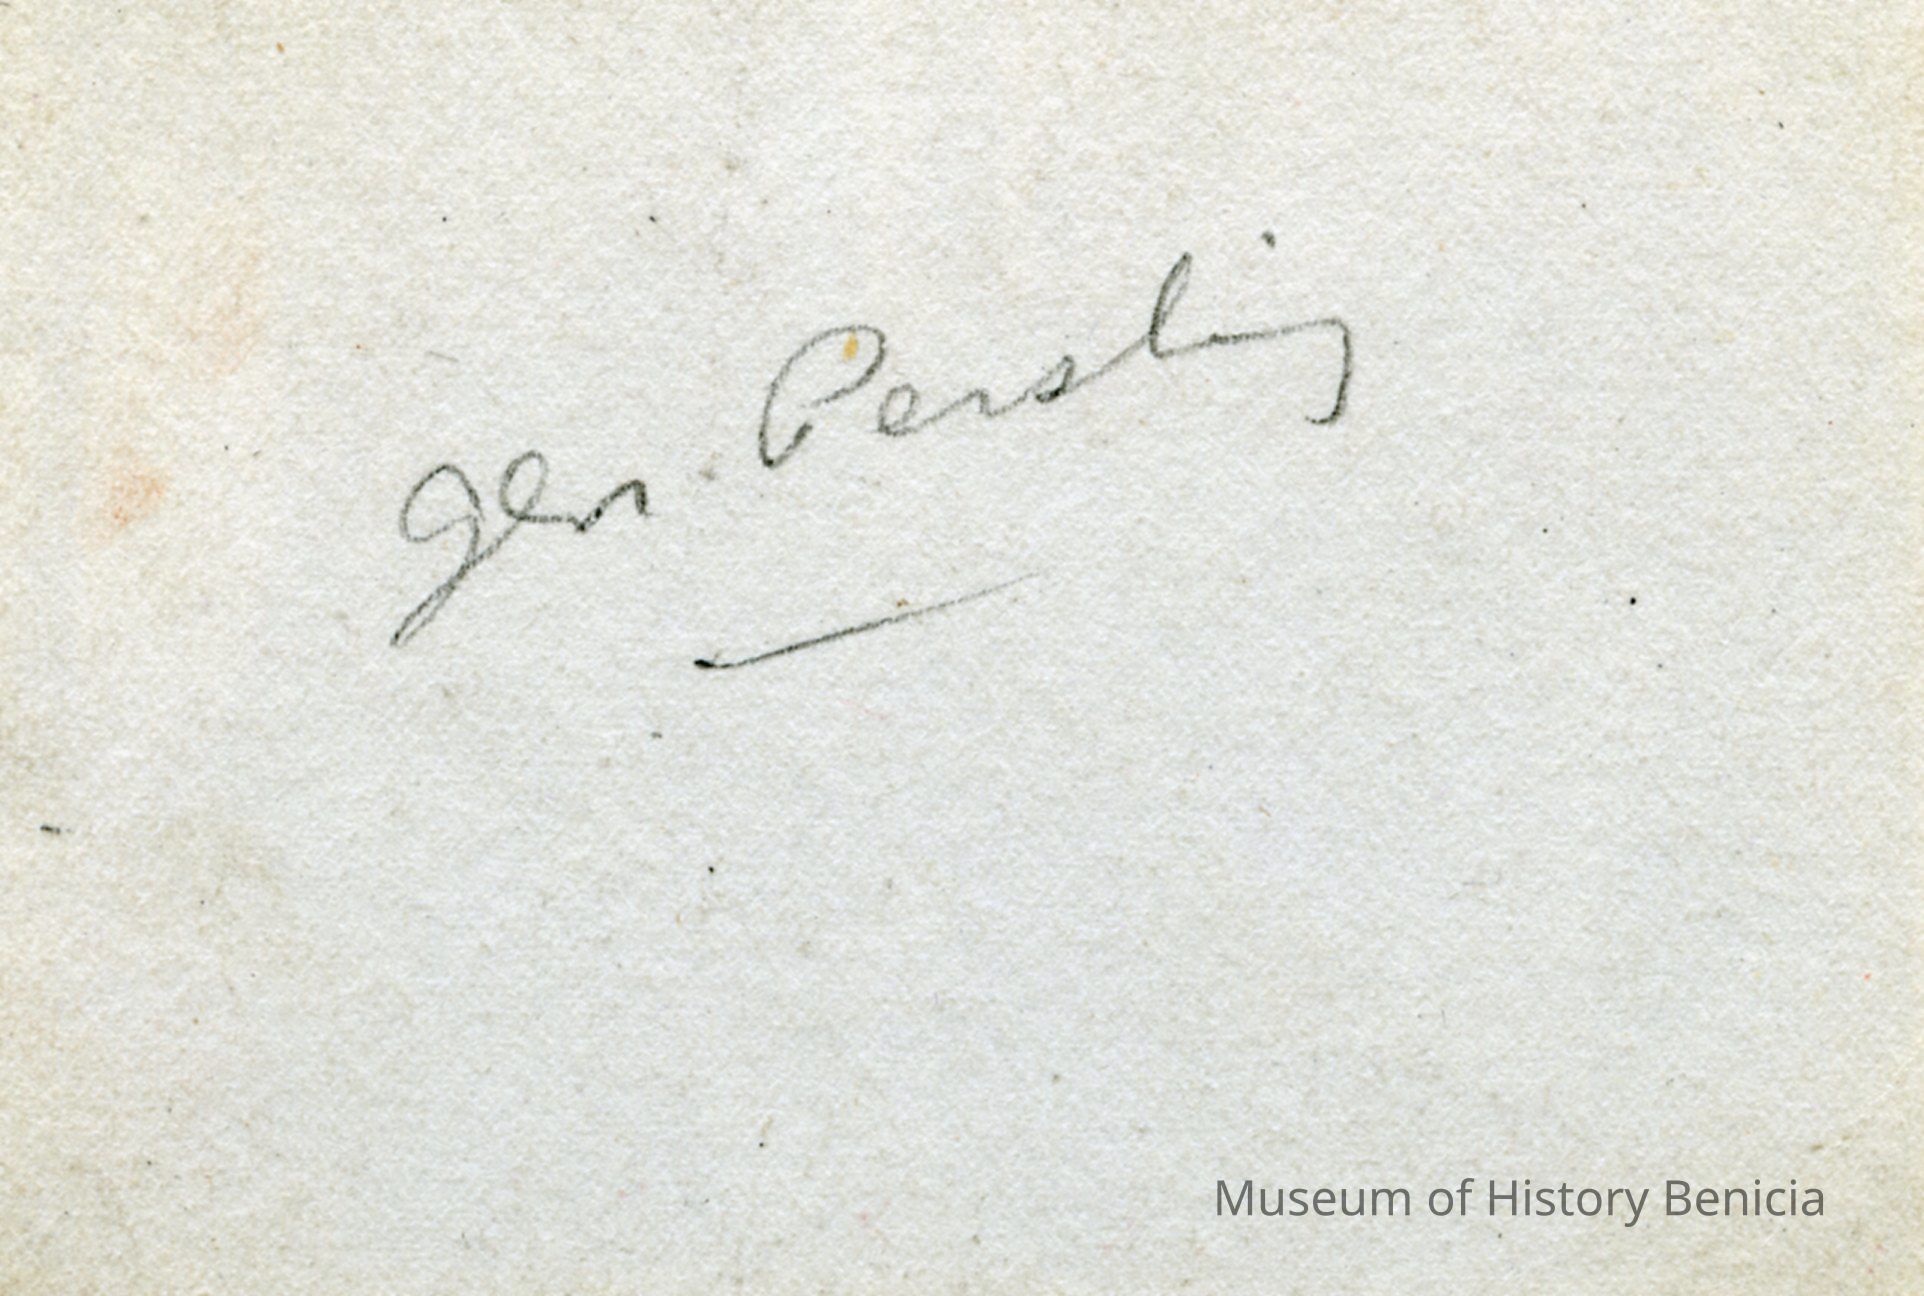 Gen. Pershing
Museum of History Benicia